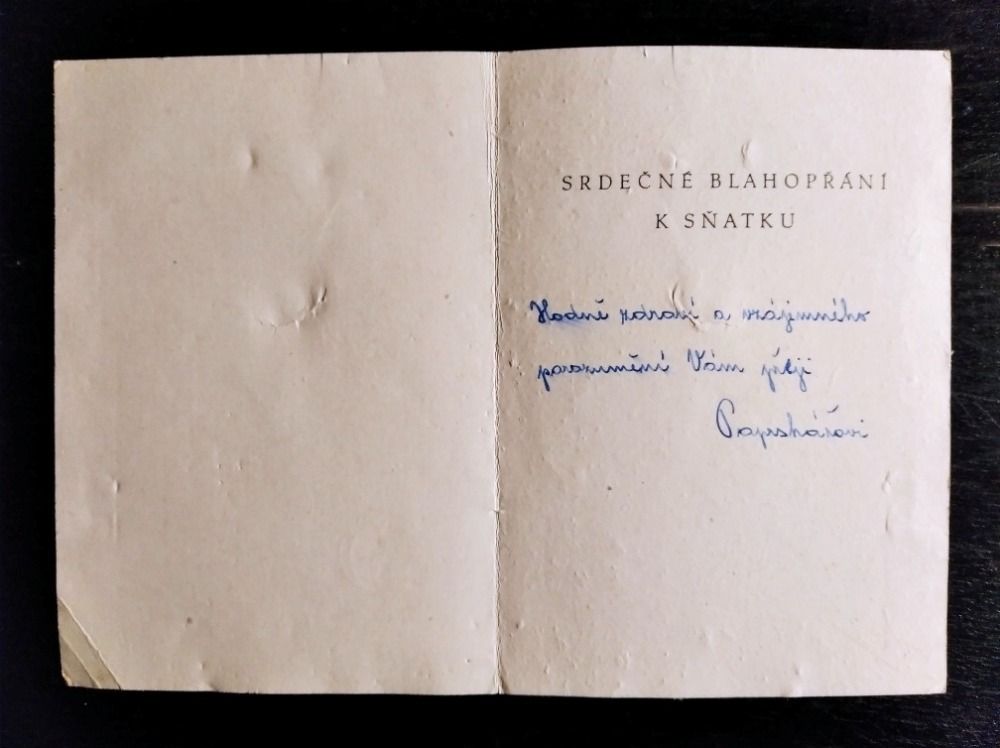 SRDEČNÉ BLAHOPŘÁNÍ
K SŇATKU
Hodně zdraví a vzájemného
porozumění Vám přeji
Paprskářovi